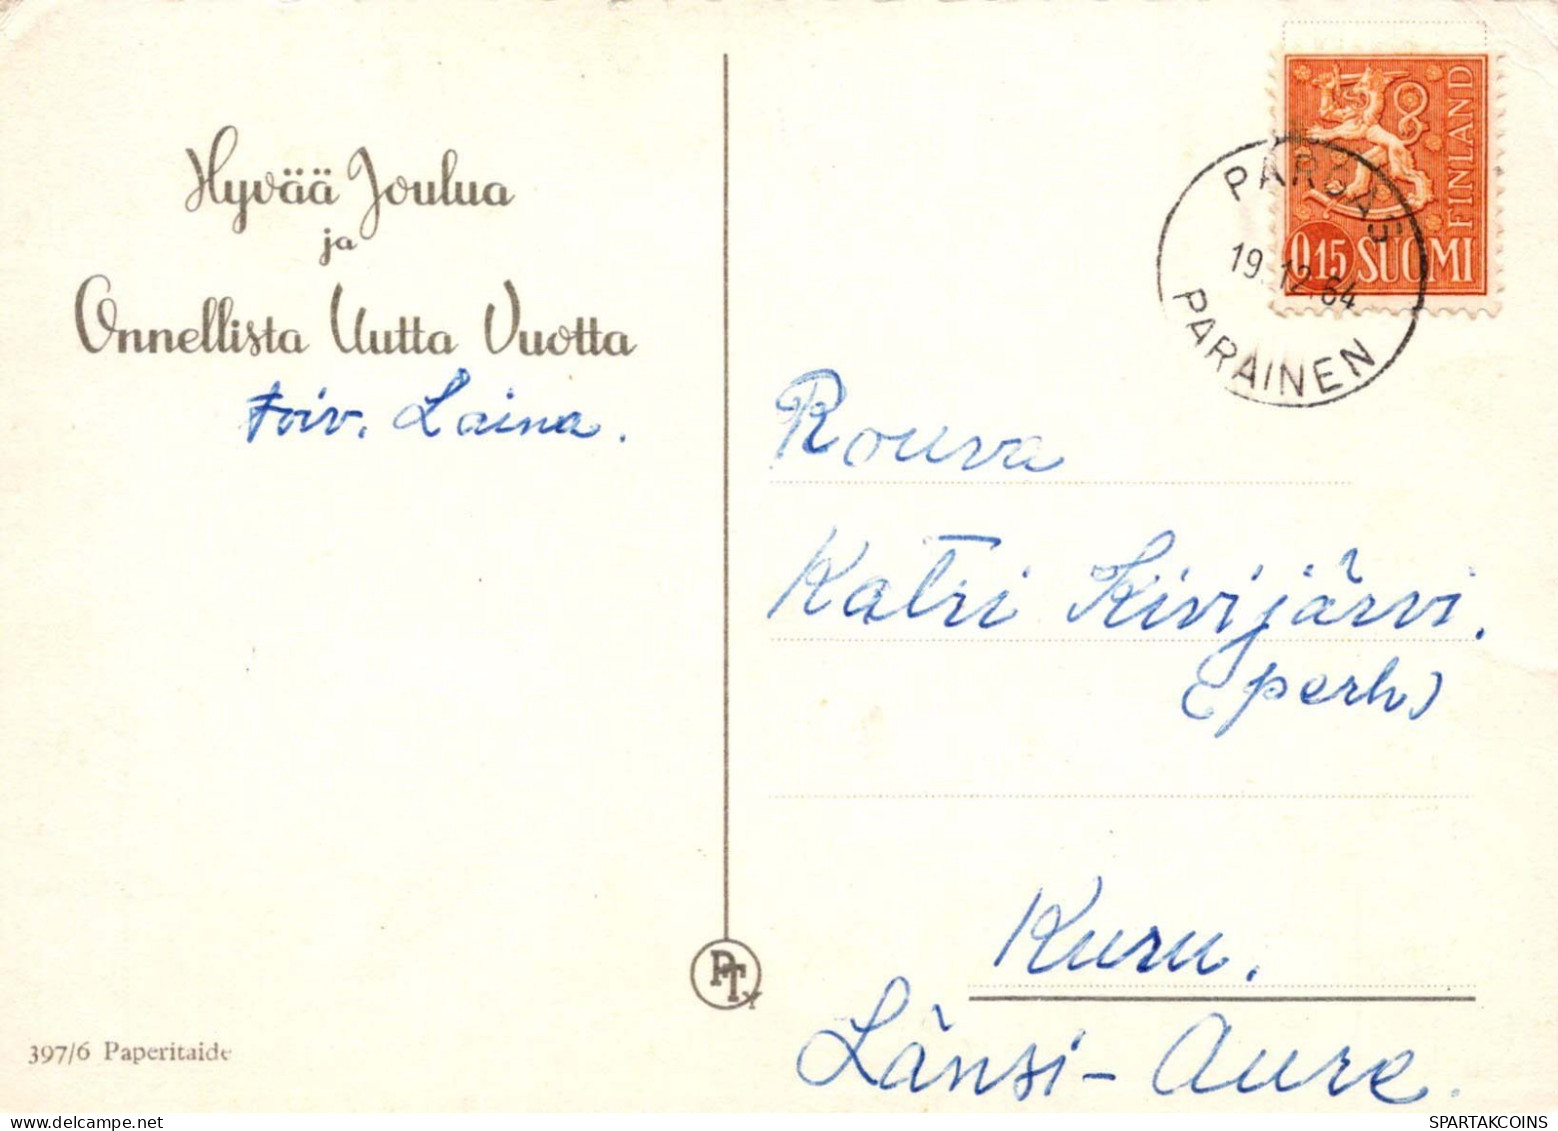 Hyvää Joulua
ja
Onnellista Uutta Vuotta
toiv. Laina.
397/6 Paperitaide
PTY
FINLAND
0,15 SUOMI
PARGAS
19.12.64
PARAINEN
Rouva
Katri Kivijärvi.
(perh)
Kuru.
Länsi-Aure.
SPARTAKCOINS